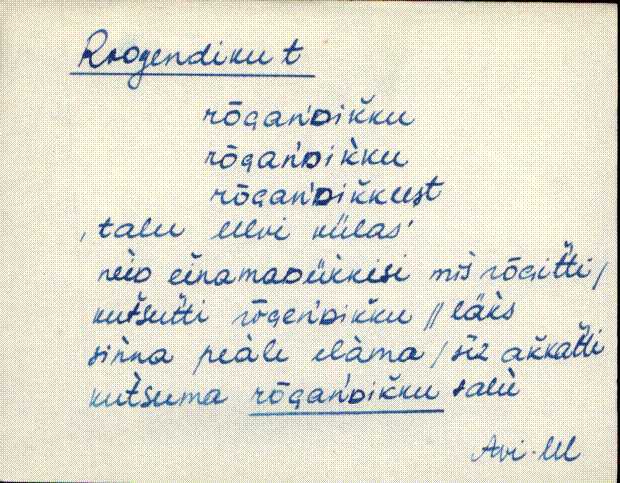 Roogendiku t
rōgan'ᴅikku
rōgan'ᴅikku
rōgan'ᴅikkust
'talu Ulvi külas'
neiᴅ einamaᴅükkisi mis rōgitti /
kutsutti rōgen'ᴅikku // läks
sinna peale elama / siz akkatti
kutsuma rōgan'ᴅikku talu
Avi-Ul